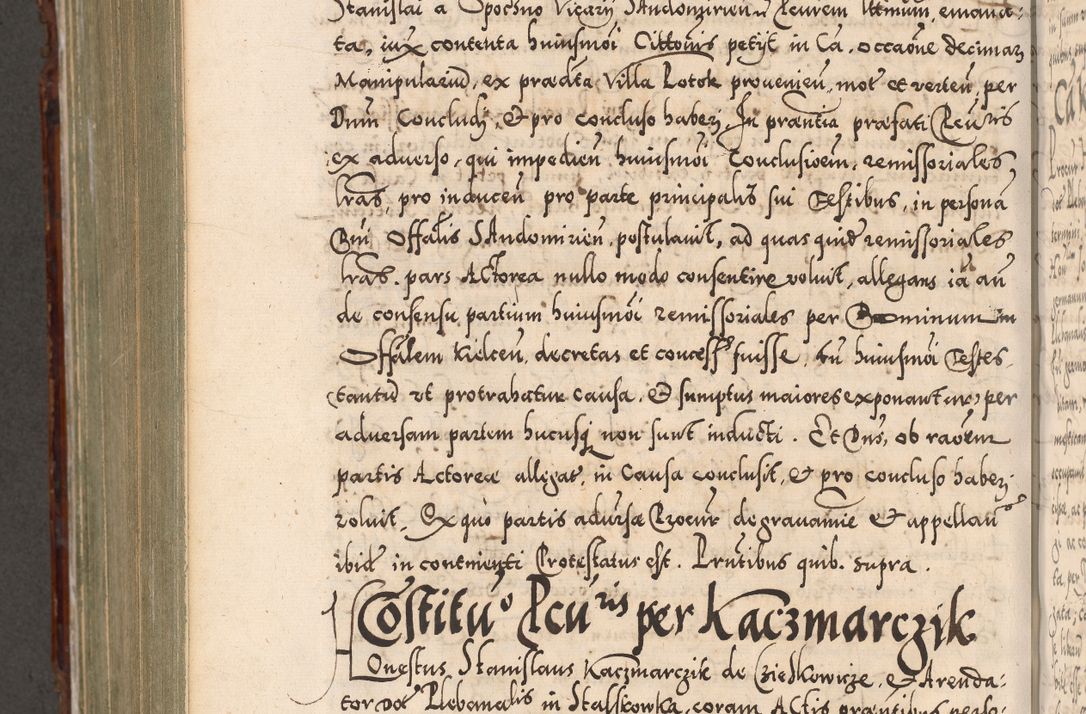 Stanislai a Opoczno Vicarÿ SAndomirien Pcurem Ittimum, emanat:
ta, iux contenta huiusmoi Cittonis petÿt in Ca. occaone decimar
Manipularium, ex prædta Villa Potok provenien, mot et verten, per
Dnum Concludj, & pro concluso haberj. In præntia præfati Pcuris
ex adverso, qui impedien huiusmoi Conclusioem, remissoriales
lras, pro inducen pro parte principalis sui Testibus, in persona
Rdi Offalis SAndomirien. postulavit, ad quas quid remissoriales
lras. pars ACtorea nullo modo consentire voluit, allegans ia an
de consensu partium huiusmoi remissoriales per Dominum
Offalem Kielcen, decretas et concess fuisse, huiusmoi Testes
tantum vt protrahatur causa, & sumptus maiores exponantur, per
adversam partem hucusq non sunt inducti. Et Dns, ob raoem
partis Actoreæ allegat, in Causa conclusit, & pro concluso haberj
voluit, Ex quo partis adversæ Procur de gravamie & appellan
ibid in continenti Protestatus est. Prntibus quib. supra.
Costitu Pcuris per Kaczmarczik
Onestus Stanislaus Kaczmarczik de Czieskowicze, & Arenda:
tor Plebanalis in Stalskowka, coram ACtis præntibus perso: